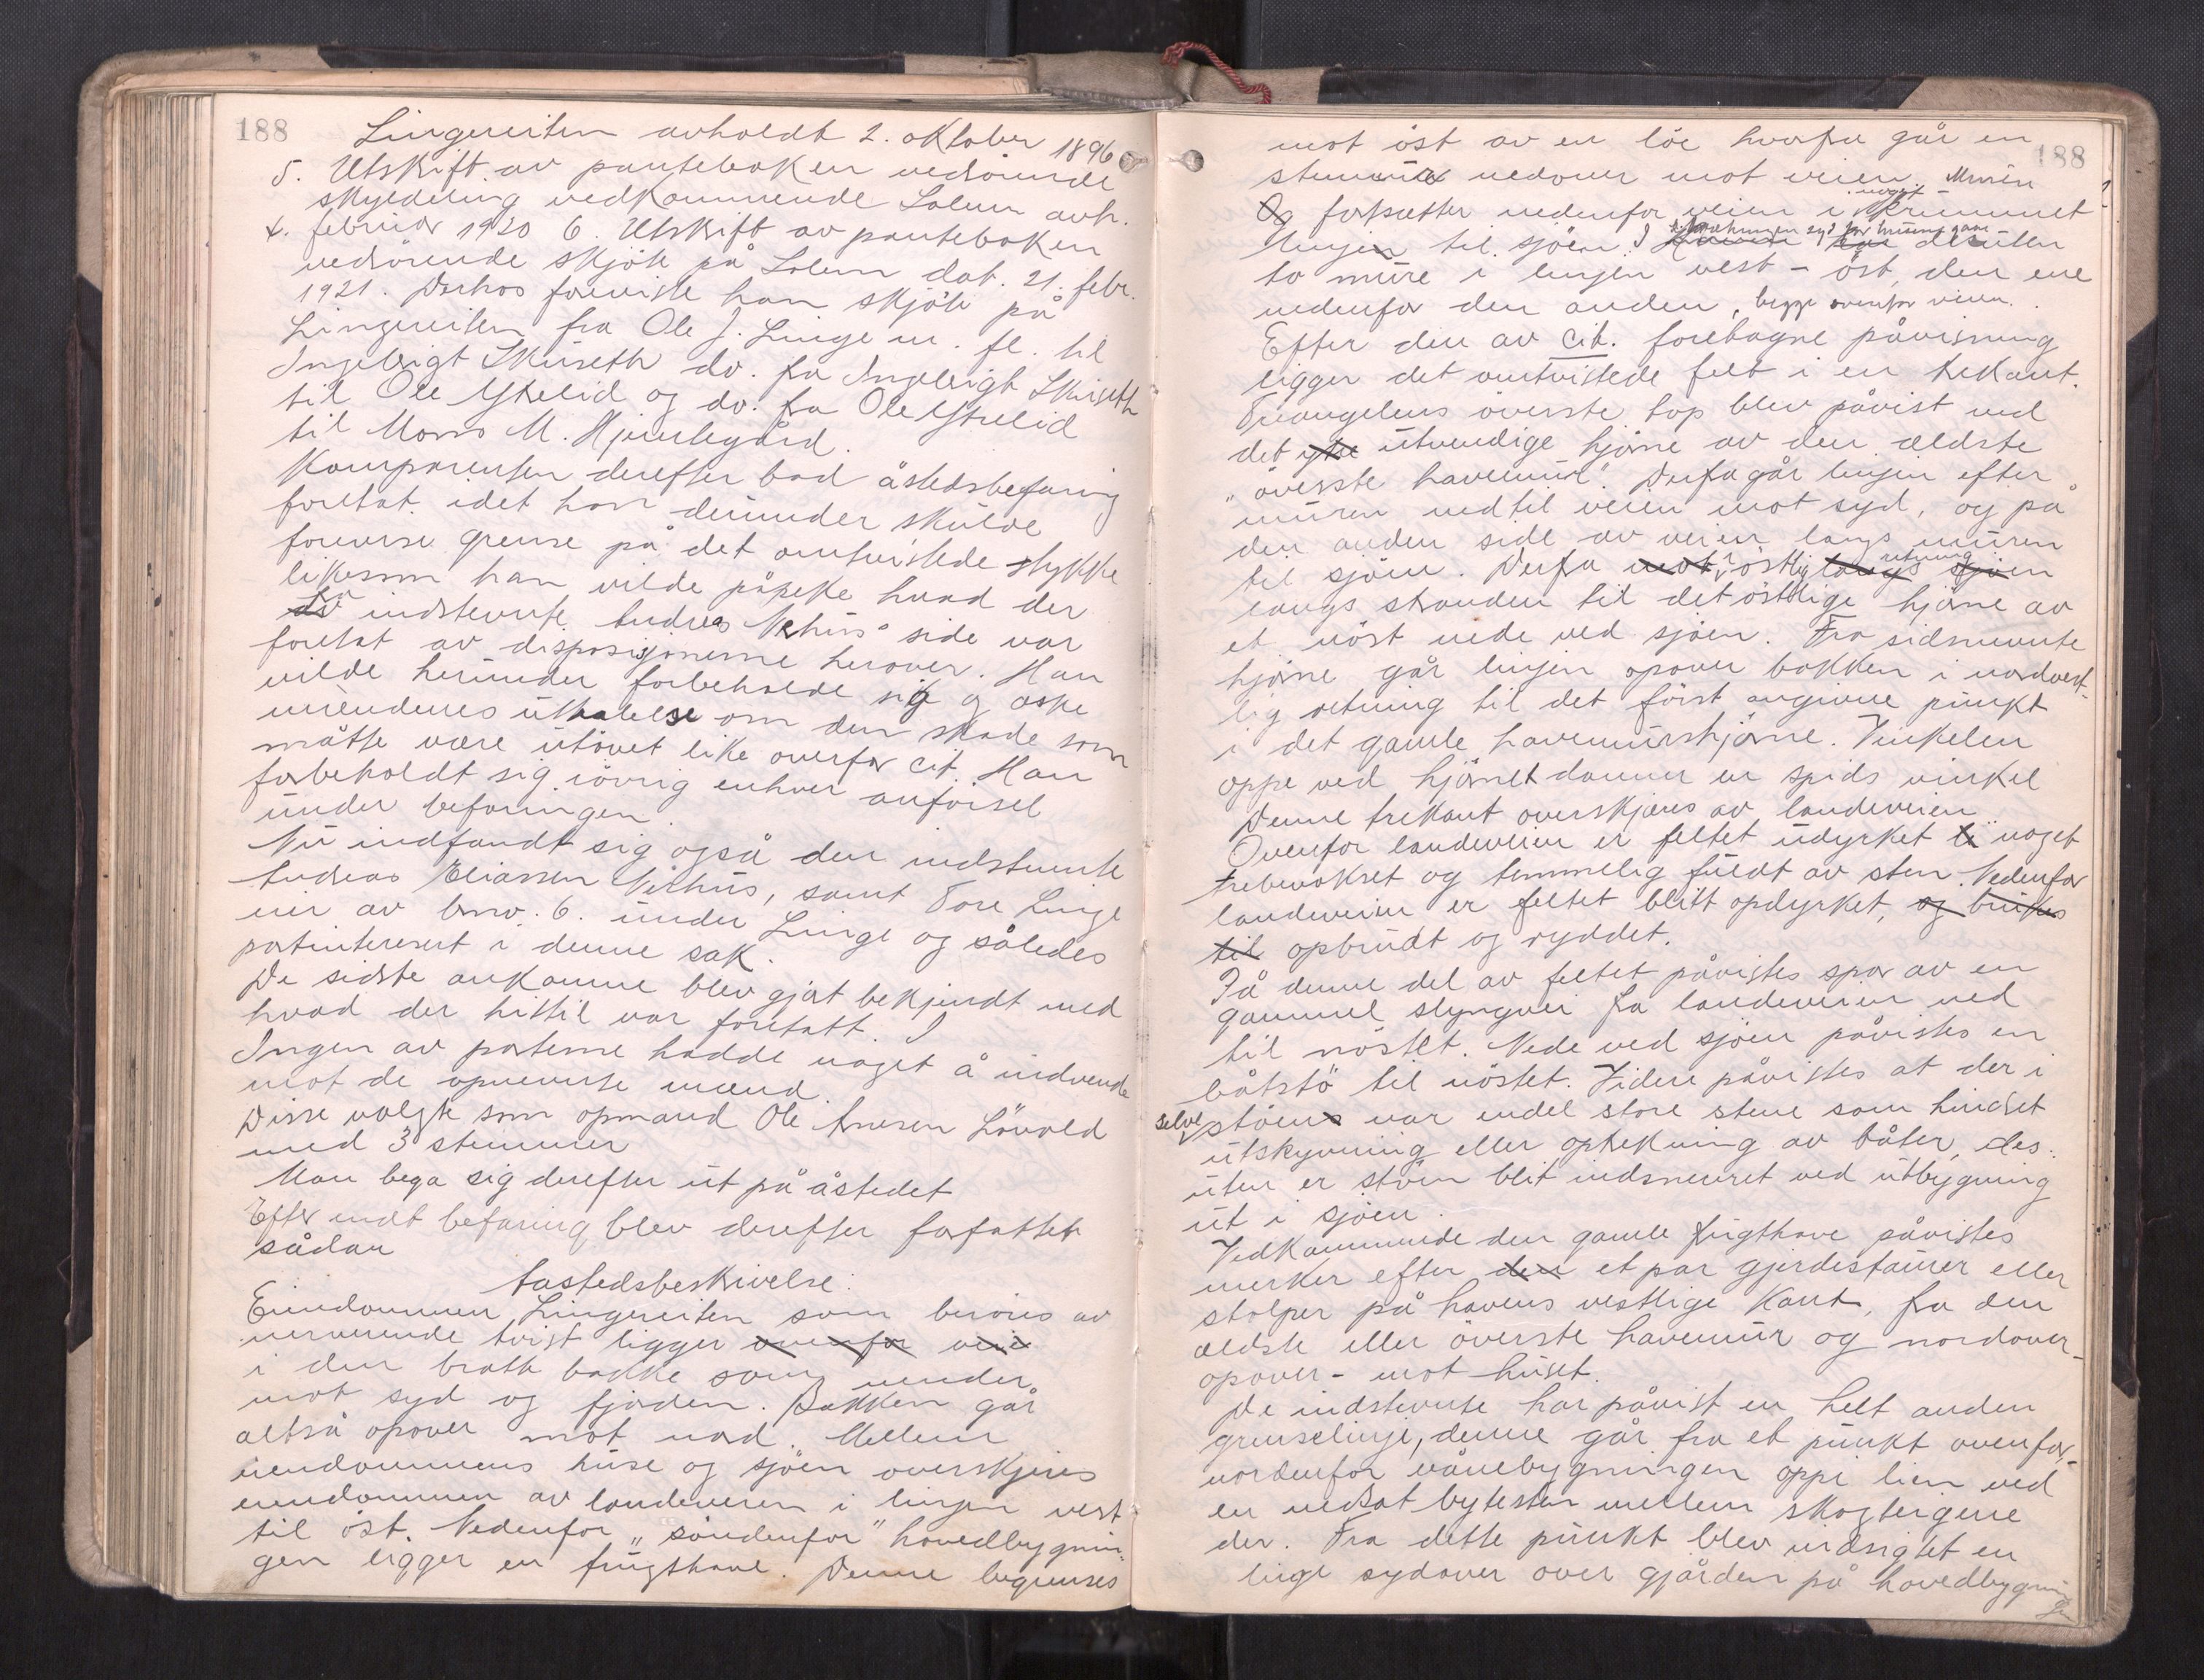 188
Lingereiten avholdt 2. oktober 1896
5. Utskrift av panteboken vedrörende
skyldeling vedkommende Solem avh.
4. februar 1920 6. Utskrift av panteboken
vedrörende skjöte på Solem dat. 21. febr.
1921. Derhos foreviste han skjöte på
Lingereiten fra Ole J. Linge m. fl. til
Ingebrigt Skuseth do. fra Ingebrigt Skuseth
til Ole Ytrelid og do. fra Ole Ytrelid
til Mons M. Hjermlegård.
Komparenten derefter bad åstedsbefaring
foretat. idet han derunder skulde
forevise grense på det omtvistede stykke
likesom han vilde påpeke hvad der
fra indstevnte Andreas Vehus' side var
foretat av disposisjonerne herover. Han
vilde herunder forbeholde sig og æske
mændenes uttalelse om den skade som
måtte være utövet like overfor cit. Han
forbeholdt sig iövrig enhver anförsel
under befaringen.
Nu indfandt sig også den indstevnte
Andreas Eliassen Vehus, samt Tore Linge
eier av brno. 6. under Linge og således
partinteresert i denne sak.
De sidste ankomne blev gjort bekjendt med
hvad der hittil var foretatt.
Ingen av parterne hadde noget å indvende
mot de opnevnte mænd.
Disse valgte som opmand Ole Arnesen Lövold
med 3 stemmer
Man bega sig derefter ut på åstedet
Efter endt befaring blev derefter forfattet
sådan
Aastedsbeskrivelse:
Eiendommen Lingereiten som beröres av
nerverende tvist ligger ovenfor veie
i den bratte bakke som vender
mot syd og fjorden. Bakken går
altså opover mot nord. Mellem
eiendommens huse og sjöen overskjæres
eiendommen av landeveien i linjen vest
til öst. Nedenfor "söndenfor" hovedbygnin-
gen ligger en frugthave. Denne begrenses
188
mot öst av en löe hvorfra går en
stenmur nedover mot veien. Muren
Og fortsætter nedenfor veien i noget krummet
linjen til sjöen. I desuten
to mure i linjen vest - öst, den ene
nedenfor den anden, begge ovenfor veien.
Efter den av cit. foretagne påvisning
ligger det omtvistede felt i en trekant.
Triangelens överste top blev påvist ved
det ytre utvendige hjörne av den ældste
"överste havemur". Derfra går linjen efter
muren ned til veien mot syd, og på
den anden side av veien langs muren
til sjöen. Derfra mot i östlig retning langs sjöen
langs stranden til det östlige hjörne av
et nöst nede ved sjöen. Fra sidsnevnte
hjörne går linjen opover bakken i nordvest-
lig retning til det först angivne punkt
i det gamle havemurshjörne. Vinkelen
oppe ved hjörnet danner en spids vinkel
Denne trekant overskjæres av landeveien
Ovenfor landeveien er feltet udyrket noget
trebevokset og temmelig fuldt av sten. Nedenfor
landeveien er feltet blitt opdyrket, og brukes
til opbrudt og ryddet.
På denne del av feltet påvistes spor av en
gammel slyngvei fra landeveien ned
til nöstet. Nede ved sjöen påvistes en
båtstö til nöstet. Videre påvistes at der i
selve stöen var endel store stene som hindret
utskyvning eller optrekning av båter, des-
uten er stöen blit indsnevret ved utbygning
ut i sjöen.
Vedkommende den gamle frugthave påvistes
merker efter den et par gjerdestaurer eller
stolper på havens vestlige kant, fra den
ældste eller överste havemur og nordover-
opover - mot huset.
De indstevnte har påvist en helt anden
grenselinje, denne går fra et punkt ovenfor-
nordenfor vånebygningen oppi lien ved
en nedsat bytesten mellem skogteigene
der. Fra dette punkt blev utsigtet en
linje sydover over gjården på hovedbygnin
gen